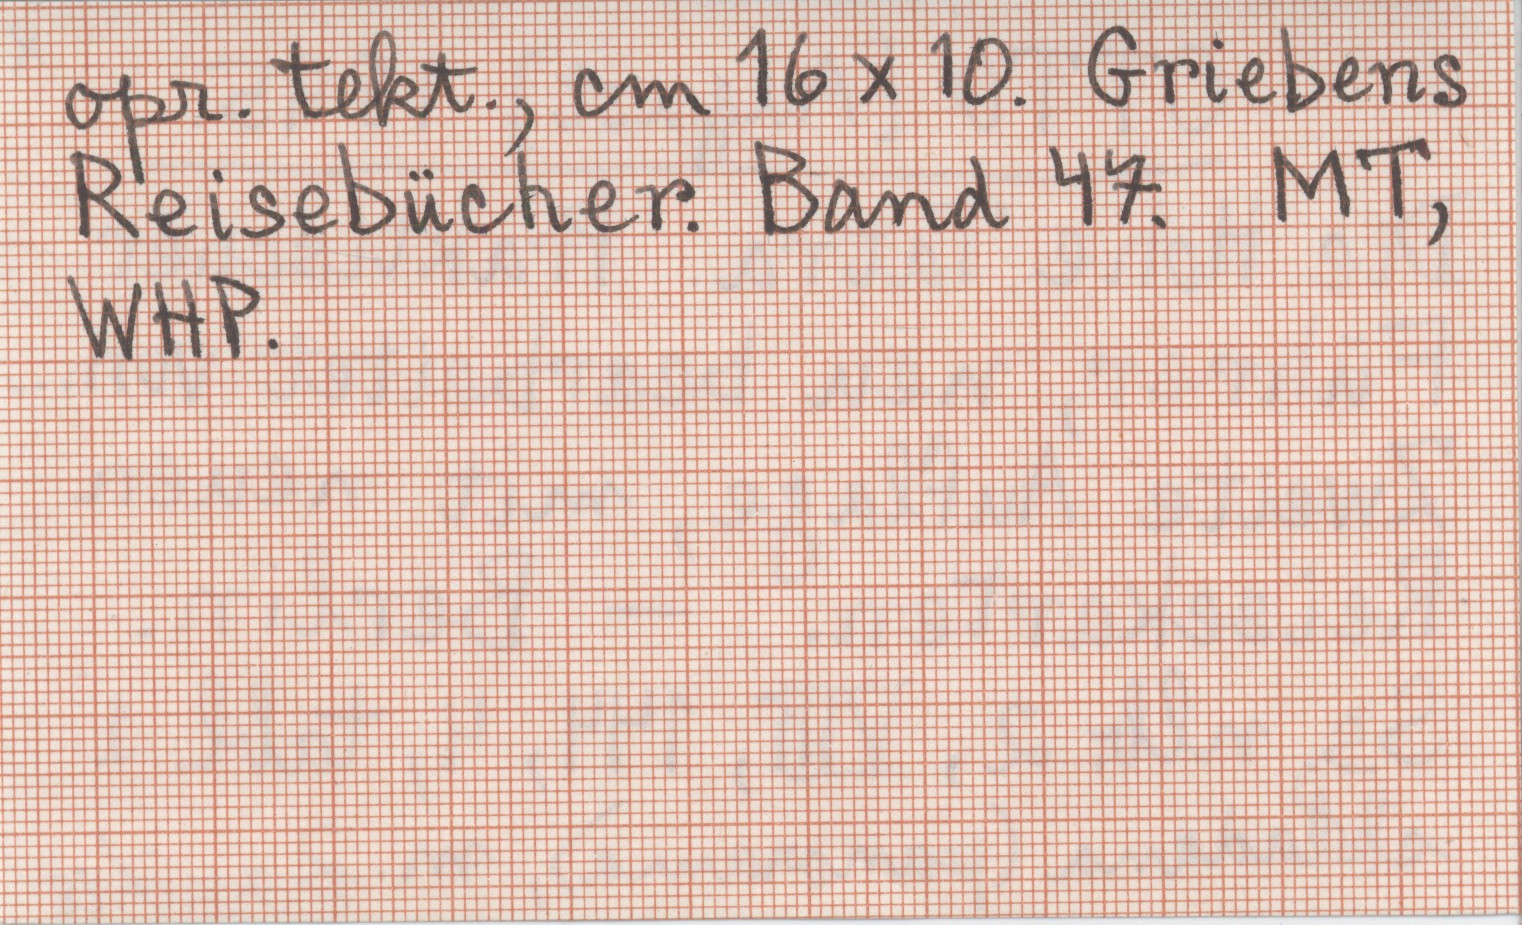 opr. tekt., cm 16 x 10. Griebens
Reisebücher. Band 47. MT,
WHP.